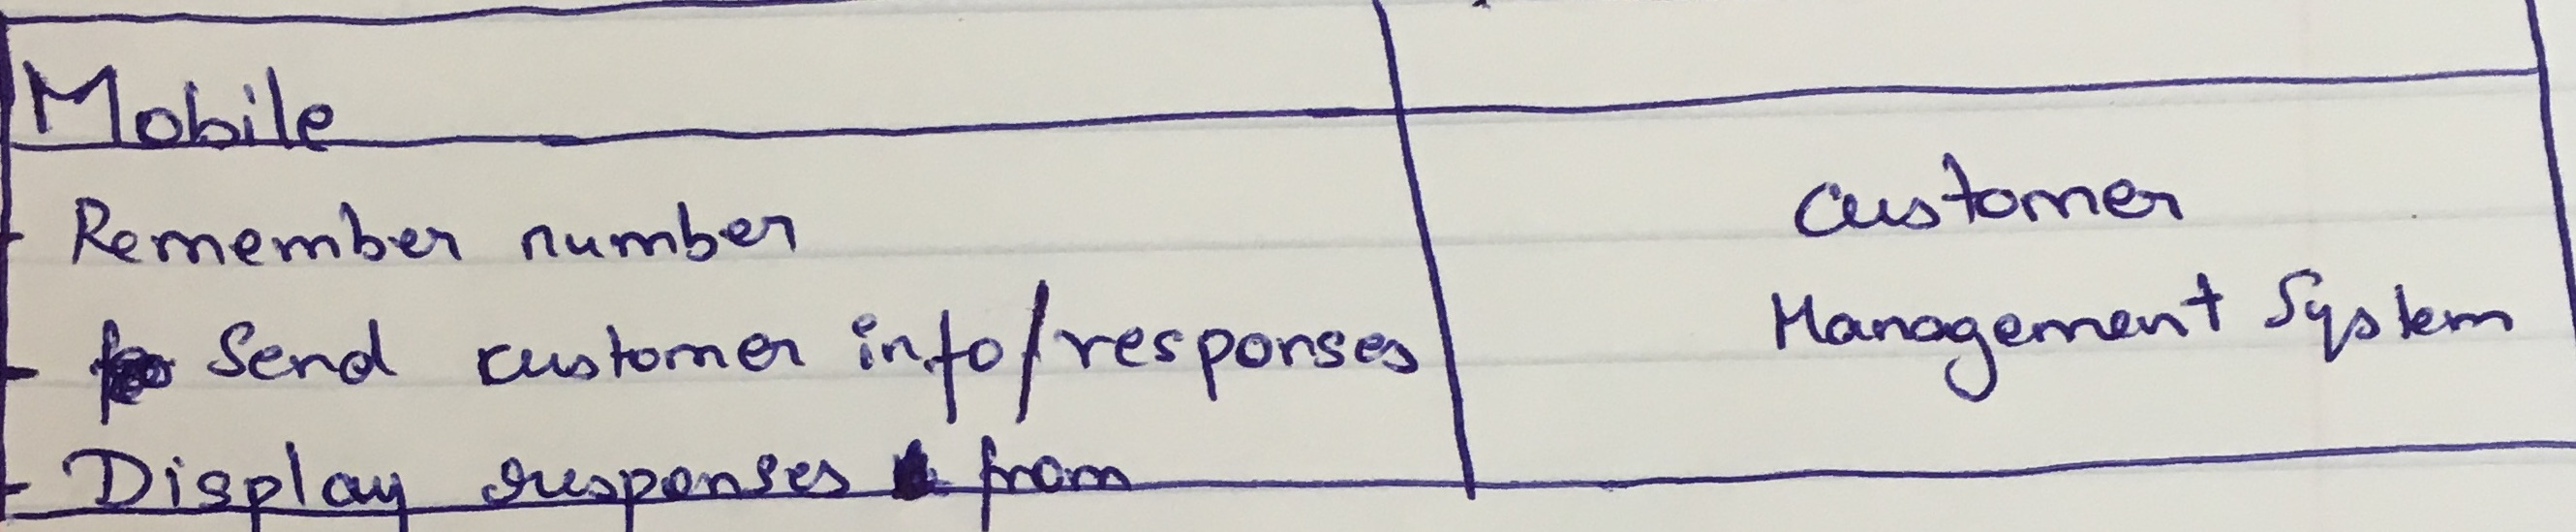 Mobile
- Remember number
- Send customer info/responses
- Display responses from
Customer
Management System